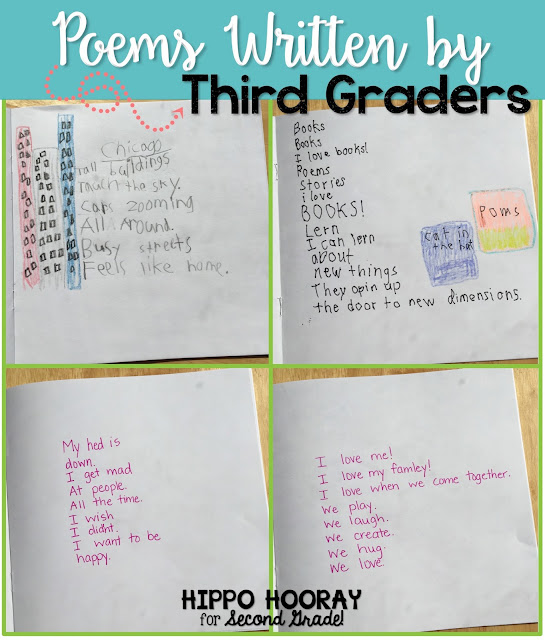 Poems Written by
Third Graders
Chicago
Tall buildings
reach the sky.
Cars zooming
All Around.
Busy streets
Feels like home.
Books
Books
I love books!
Poems
Stories
i love
BOOKS!
Lern
I can lern
about
new things
They opin up
the door to new dimensions.
cat in
the hat
Poms
My hed is
down.
I get mad
At people.
All the time.
I wish
I didnt.
I want to be
happy.
I love me!
I love my famley!
I love when we come together.
We play.
We laugh.
We create.
We hug.
We love.
HIPPO HOORAY
for Second Grade!